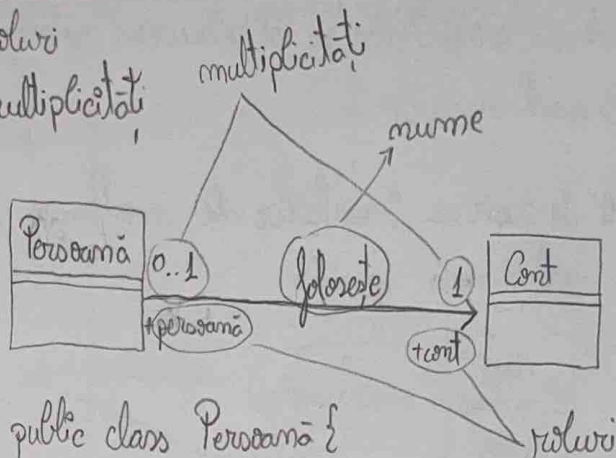 roluri
multiplicități
multiplicități
nume
Persoană
0..1
folosește
1
Cont
+persoană
+cont
public class Persoană {
roluri